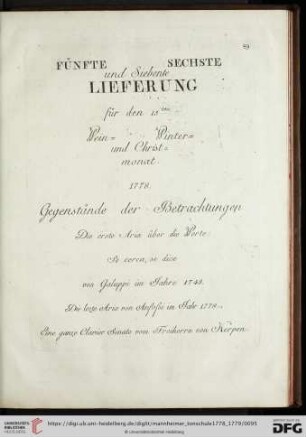 FÜNFTE SECHSTE
und Siebente
LIEFERUNG
für den 15ten
Wein= Winter=
und Christ=
monat.
1778.
Gegenstände der Betrachtungen
Die erste Aria über die Worte:
Se cerca, se dice
von Galuppi im Jahre 1749.
Die lezte Aria von im Jahr 1778.
Eine ganze Clavier Sonate von Freiherrn von Kerpen.
http://digi.ub.uni-heidelberg.de/diglit/mannheimer_tonschule1778_1779/0095
© Universitätsbibliothek Heidelberg
UNIVERSITÄTS-
BIBLIOTHEK
HEIDELBERG
gefördert durch die
DFG